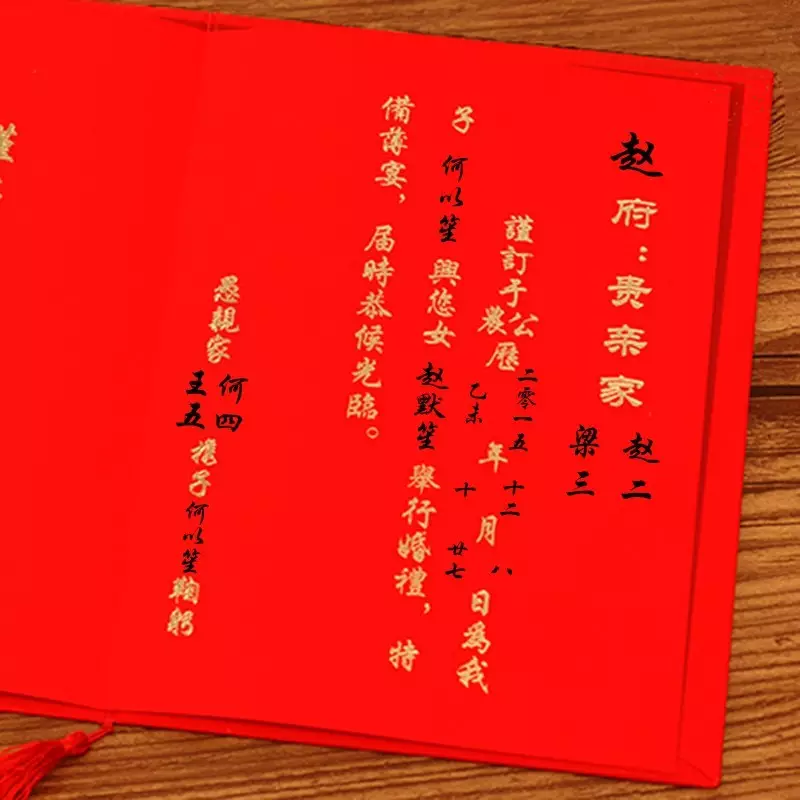 赵府：贵亲家
赵二
梁三
謹訂于公農歷二零一五乙未年十二十月八廿七日為我
子何以笙興您女赵默笙舉行婚禮，特
備薄宴，届時恭候光臨。
愚親家何四王五携子何以笙鞠躬